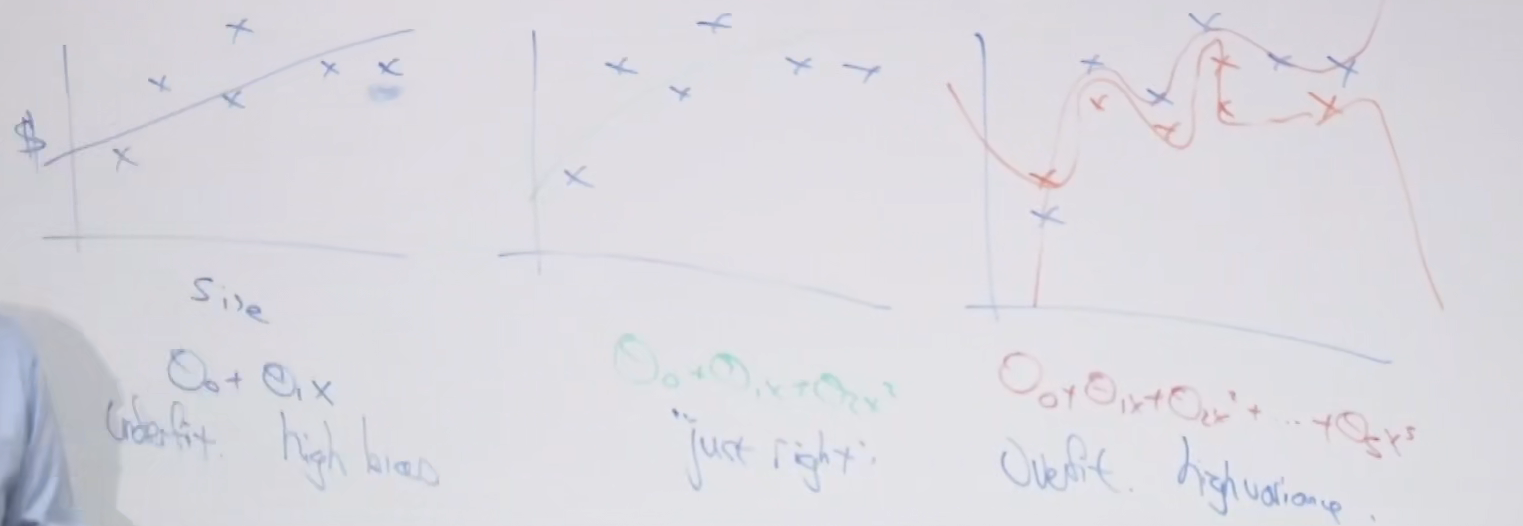 $
Size
Θ₀ + Θ₁x
Underfit. high bias
Θ₀ + Θ₁x + Θ₂x²
"just right".
Θ₀ + Θ₁x + Θ₂x² + ... + Θ₅x⁵
Overfit. high variance.